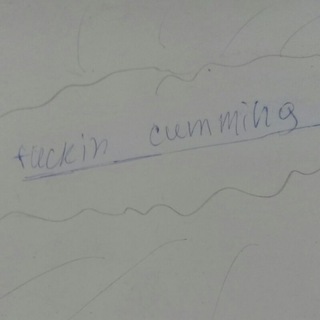 fuckin cumming